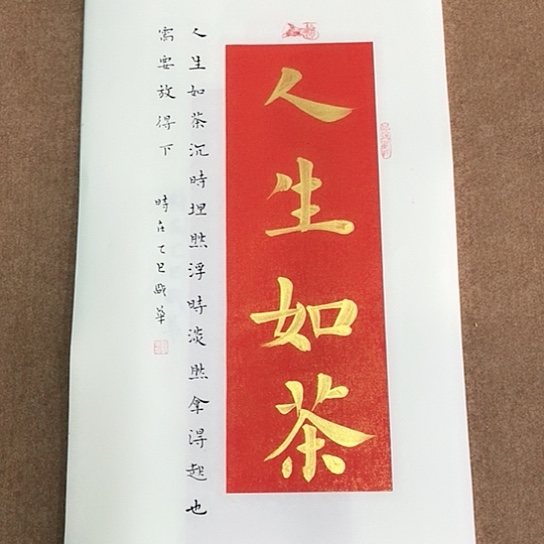 人生如茶
人生如茶沉時埋㸐浮時淡㸐拿得起也
需要放得下 時在乙巳